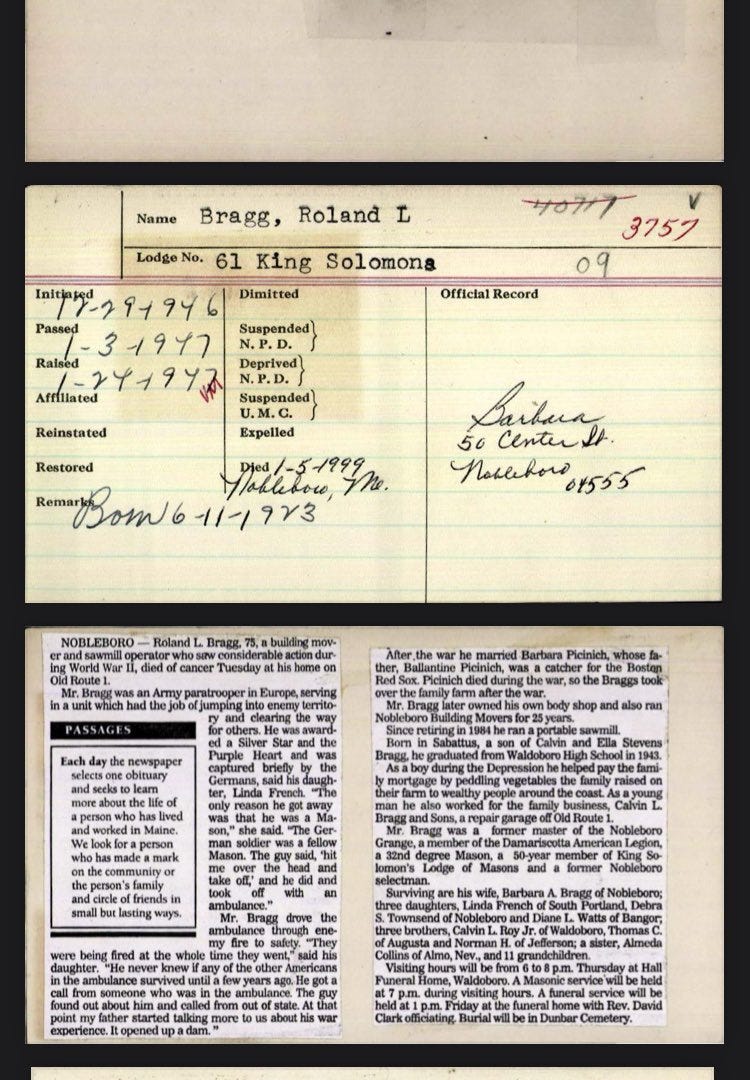 40717
V
Name Bragg, Roland L
3757
Lodge No. 61 King Solomons
09
Initiated 12-29-1946
Dimitted
Official Record
Passed 1-3-1947
Suspended
N. P. D.
Raised 1-24-1947
Deprived
N. P. D.
Affiliated
Suspended
U. M. C.
Reinstated
Expelled
Restored
Died 1-5-1999
Nobleboro, Me.
Remarks Born 6-11-1923
Barbara
50 Center St.
Nobleboro
04555
NOBLEBORO — Roland L. Bragg, 75, a building mov-
er and sawmill operator who saw considerable action dur-
ing World War II, died of cancer Tuesday at his home on
Old Route 1.
Mr. Bragg was an Army paratrooper in Europe, serving
in a unit which had the job of jumping into enemy territo-
ry and clearing the way
for others. He was award-
ed a Silver Star and the
Purple Heart and was
captured briefly by the
Germans, said his daugh-
ter, Linda French. "The
only reason he got away
was that he was a Ma-
son," she said. "The Ger-
man soldier was a fellow
Mason. The guy said, 'hit
me over the head and
take off,' and he did and
took off with an
ambulance."
Mr. Bragg drove the
ambulance through ene-
my fire to safety. "They
were being fired at the whole time they went," said his
daughter. "He never knew if any of the other Americans
in the ambulance survived until a few years ago. He got a
call from someone who was in the ambulance. The guy
found out about him and called from out of state. At that
point my father started talking more to us about his war
experience. It opened up a dam."
PASSAGES
Each day the newspaper
selects one obituary
and seeks to learn
more about the life of
a person who has lived
and worked in Maine.
We look for a person
who has made a mark
on the community or
the person's family
and circle of friends in
small but lasting ways.
After the war he married Barbara Picinich, whose fa-
ther, Ballantine Picinich, was a catcher for the Boston
Red Sox. Picinich died during the war, so the Braggs took
over the family farm after the war.
Mr. Bragg later owned his own body shop and also ran
Nobleboro Building Movers for 25 years.
Since retiring in 1984 he ran a portable sawmill.
Born in Sabattus, a son of Calvin and Ella Stevens
Bragg, he graduated from Waldoboro High School in 1943.
As a boy during the Depression he helped pay the fami-
ly mortgage by peddling vegetables the family raised on
their farm to wealthy people around the coast. As a young
man he also worked for the family business, Calvin L.
Bragg and Sons, a repair garage off Old Route 1.
Mr. Bragg was a former master of the Nobleboro
Grange, a member of the Damariscotta American Legion,
a 32nd degree Mason, a 50-year member of King So-
lomon's Lodge of Masons and a former Nobleboro
selectman.
Surviving are his wife, Barbara A. Bragg of Nobleboro;
three daughters, Linda French of South Portland, Debra
S. Townsend of Nobleboro and Diane L. Watts of Bangor;
three brothers, Calvin L. Roy Jr. of Waldoboro, Thomas C.
of Augusta and Norman H. of Jefferson; a sister, Almeda
Collins of Almo, Nev., and 11 grandchildren.
Visiting hours will be from 6 to 8 p.m. Thursday at Hall
Funeral Home, Waldoboro. A Masonic service will be held
at 7 p.m. during visiting hours. A funeral service will be
held at 1 p.m. Friday at the funeral home with Rev. David
Clark officiating. Burial will be in Dunbar Cemetery.